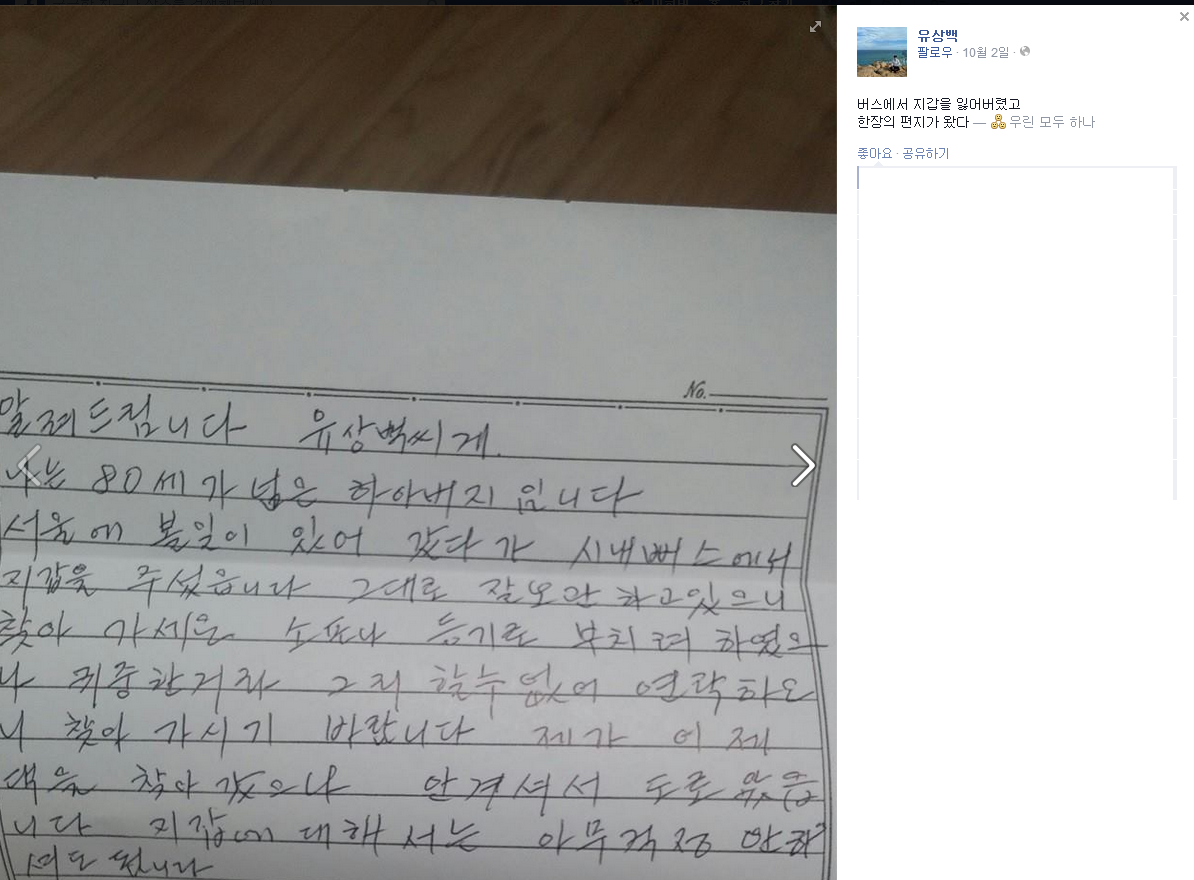 No.
알려드립니다 유상백씨게.
나는 80세가 넘은 하아버지 입니다
서울에 볼일이 있어 갔다가 시내뻐스에서
지갑을 주섰읍니다 그대로 잘보관 하고있으니
찾아 가세요 소포나 등기로 부치려 하였으
나 귀중한거라 그리 할수없어 연락하오
니 찾아 가시기 바랍니다 제가 어제
댁을 찾아 갔으나 안계셔서 도로 왔읍
니다 지갑에 대해서는 아무걱정 안하
셔도 됩니다
유상백
팔로우 · 10월 2일 ·
버스에서 지갑을 잃어버렸고
한장의 편지가 왔다 — 우린 모두 하나
좋아요 · 공유하기